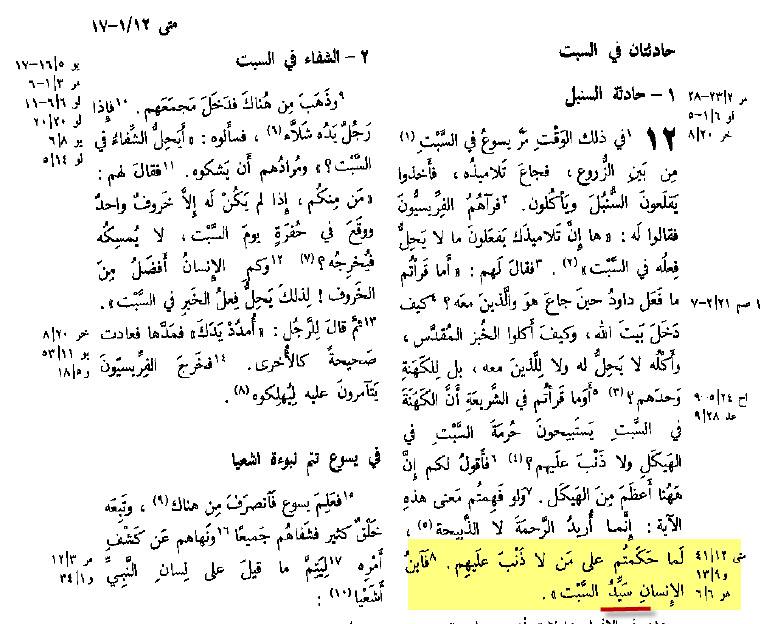 متى ١٢/١-١٧
حادثتان في السبت
١ - حادثة السنبل
مر ٢/٢٣-٢٨
لو ٦/١-٥
خر ٢٠/٨
١٢ ١في ذلك الوَقْتِ مَرَّ يسوعُ في السَّبْتِ (١)
مِن بَينِ الزُّروع ، فجاعَ تلاميذُه ، فأَخذوا
يَقلَعونَ السُّنبُلَ ويَأكُلون. ٢فرآهُمُ الفِرِّيسيُّون
فقالوا لَه : «ها إِنَّ تَلاميذَكَ يَفعَلونَ ما لا يَحِلُّ
فِعلُه في السَّبْت» (٢) . ٣فقالَ لَهم : « أَما قَرأتُم
ما فَعَلَ داودُ حينَ جاعَ هوَ والَّذينَ معَه ؟ ٤كيفَ
١ صم ٢١/٢-٧
دَخَلَ بَيتَ الله ، وكيفَ أَكلوا الخُبزَ المُقَدَّس ،
وأَكْلُه لا يَحِلُّ له ولا لِلَّذينَ معه ، بل لِلكَهَنةِ
وَحدَهم ؟ (٣) ٥أَوَما قَرأتُم في الشَّريعَةِ أَنَّ الكَهَنَةَ
اح ٢٤/٥-٩
عد ٢٨/٩
في السَّبتِ يَستَبيحونَ حُرمَةَ السَّبْتِ في
الهَيكَلِ ولا ذَنْبَ علَيهِم ؟ (٤) ٦فأَقولُ لكم إِنَّ
هَهُنا أَعظَمَ مِنَ الهَيكَل . ٧ولو فَهِمتُم مَعنى هذهِ
الآية : إِنَّما أُريدُ الرَّحمَةَ لا الذَّبيحة (٥) ،
لَما حَكَمتُم على مَن لا ذَنْبَ علَيهِم . ٨فَابنُ
الإِنسانِ سَيِّدُ السَّبْت» .
متى ١٢/٤١
و٩/١٣
مر ٦/٦
٢ - الشفاء في السبت
يو ٥/١٦-١٧
مر ٣/١-٦
لو ٦/٦-١١
لو ٢٠/٢٠
٦/٨
لو ١٤/٥
٩وذَهَبَ مِن هُناكَ فدَخَلَ مَجمَعَهم. ١٠فإِذا
رَجُلٌ يَدُه شَلاَّء (٦) ، فسأَلوه : «أَيَحِلُّ الشِّفاءُ في
السَّبْت ؟» ومُرادُهم أَن يَشكوه. ١١فقالَ لهم :
«مَن مِنكُم ، إِذا لم يَكُنْ لَه إِلاَّ خَروفٌ واحدٌ
ووَقَعَ في حُفرَةٍ يومَ السَّبْت ، لا يُمسِكُه
فيُخرِجُه ؟ (٧) ١٢وكمِ الإِنسانُ أَفضَلُ مِنَ
الخَروف ! لِذلكَ يَحِلُّ فِعلُ الخَيرِ في السَّبْت» .
١٣ثُمَّ قالَ لِلرَّجُل : «أُمدُدْ يَدَكَ» فمَدَّها فعادت
صَحيحةً كالأُخرى. ١٤فخَرجَ الفِرِّيسيّونَ
يَتآمرونَ عليه لِيُهلِكوه (٨) .
خر ٢٠/٨
يو ١١/٥٣
و٥/١٨
في يسوع تتم نبوءة اشعيا
١٥فعَلِمَ يسوع فَانصرَفَ مِن هناك (٩) ، وتَبِعَه
خَلْقٌ كثير فشَفاهُم جَميعاً ١٦ونَهاهم عَن كَشْفِ
أَمْرِه ١٧لِيَتِمَّ ما قيلَ على لِسانِ النَّبِيِّ
أَشَعْيا (١٠) :
مر ٣/١٢
و١/٣٤